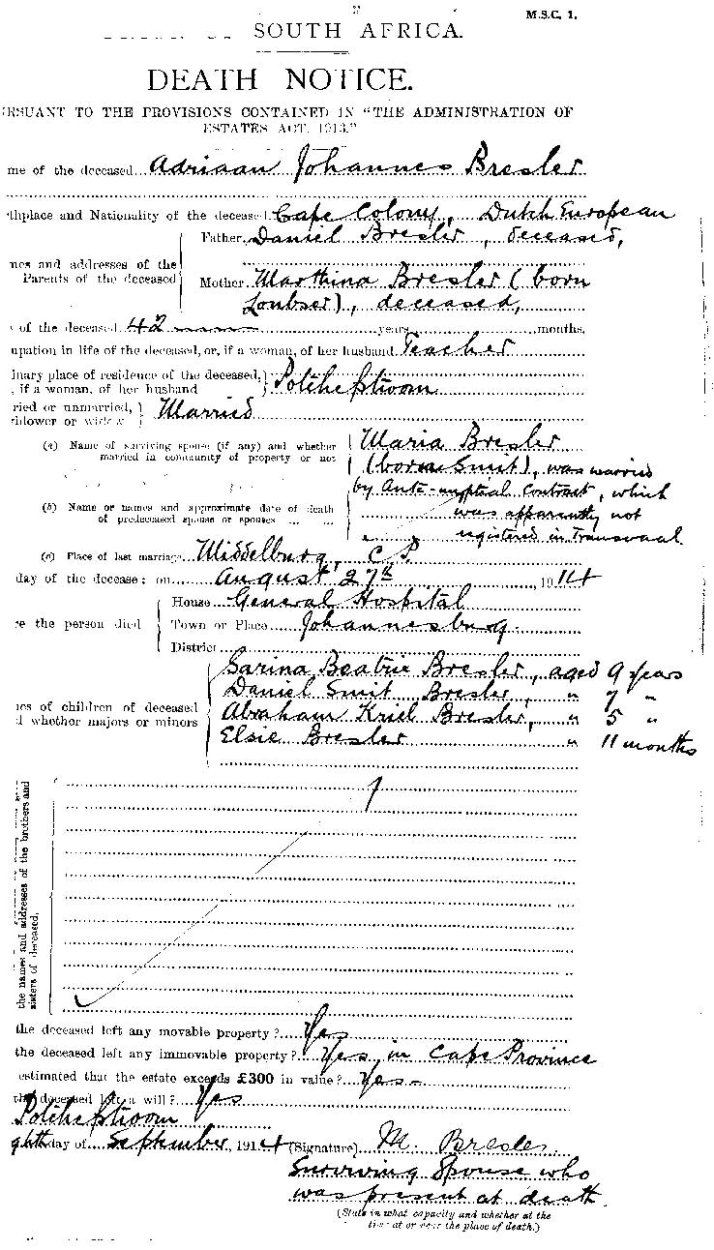 M.S.C. 1.
SOUTH AFRICA.
DEATH NOTICE.
RSUANT TO THE PROVISIONS CONTAINED IN "THE ADMINISTRATION OF
ESTATES ACT, 1913."
me of the deceased Adriaan Johannes Bresler
thplace and Nationality of the deceased Cape Colony, Dutch European
Father Daniel Bresler, deceased,
nes and addresses of the
Parents of the deceased
Mother Marthina Bresler (born
Loubser), deceased,
of the deceased 42 years months.
upation in life of the deceased, or, if a woman, of her husband Teacher
inary place of residence of the deceased,
, if a woman, of her husband Potchefstroom
ried or unmarried,
idower or widow Married
(a) Name of surviving spouse (if any) and whether
married in community of property or not
Maria Bresler
(born Smit), was married
by Ante-nuptial Contract, which
was apparently not
registered in Transvaal.
(b) Name or names and approximate date of death
of predeceased spouse or spouses
(c) Place of last marriage Middelburg, C.P.
day of the decease: on August 27th, 1914
House General Hospital
re the person died Town or Place Johannesburg.
District
Sarina Beatrie Bresler, aged 9 years
Daniel Smit Bresler, " 7 "
nes of children of deceased
d whether majors or minors
Abraham Kriel Bresler, " 5 "
Elsie Bresler " 11 months
the names and addresses of the brothers and
sisters of deceased.
the deceased left any movable property? Yes
the deceased left any immovable property? Yes, in Cape Province
estimated that the estate exceeds £300 in value? Yes -
the deceased left a will? Yes
Potchefstroom
day of September, 1914 (Signature) M. Bresler,
Surviving Spouse who
was present at death
(State in what capacity and whether at the
time at or near the place of death.)